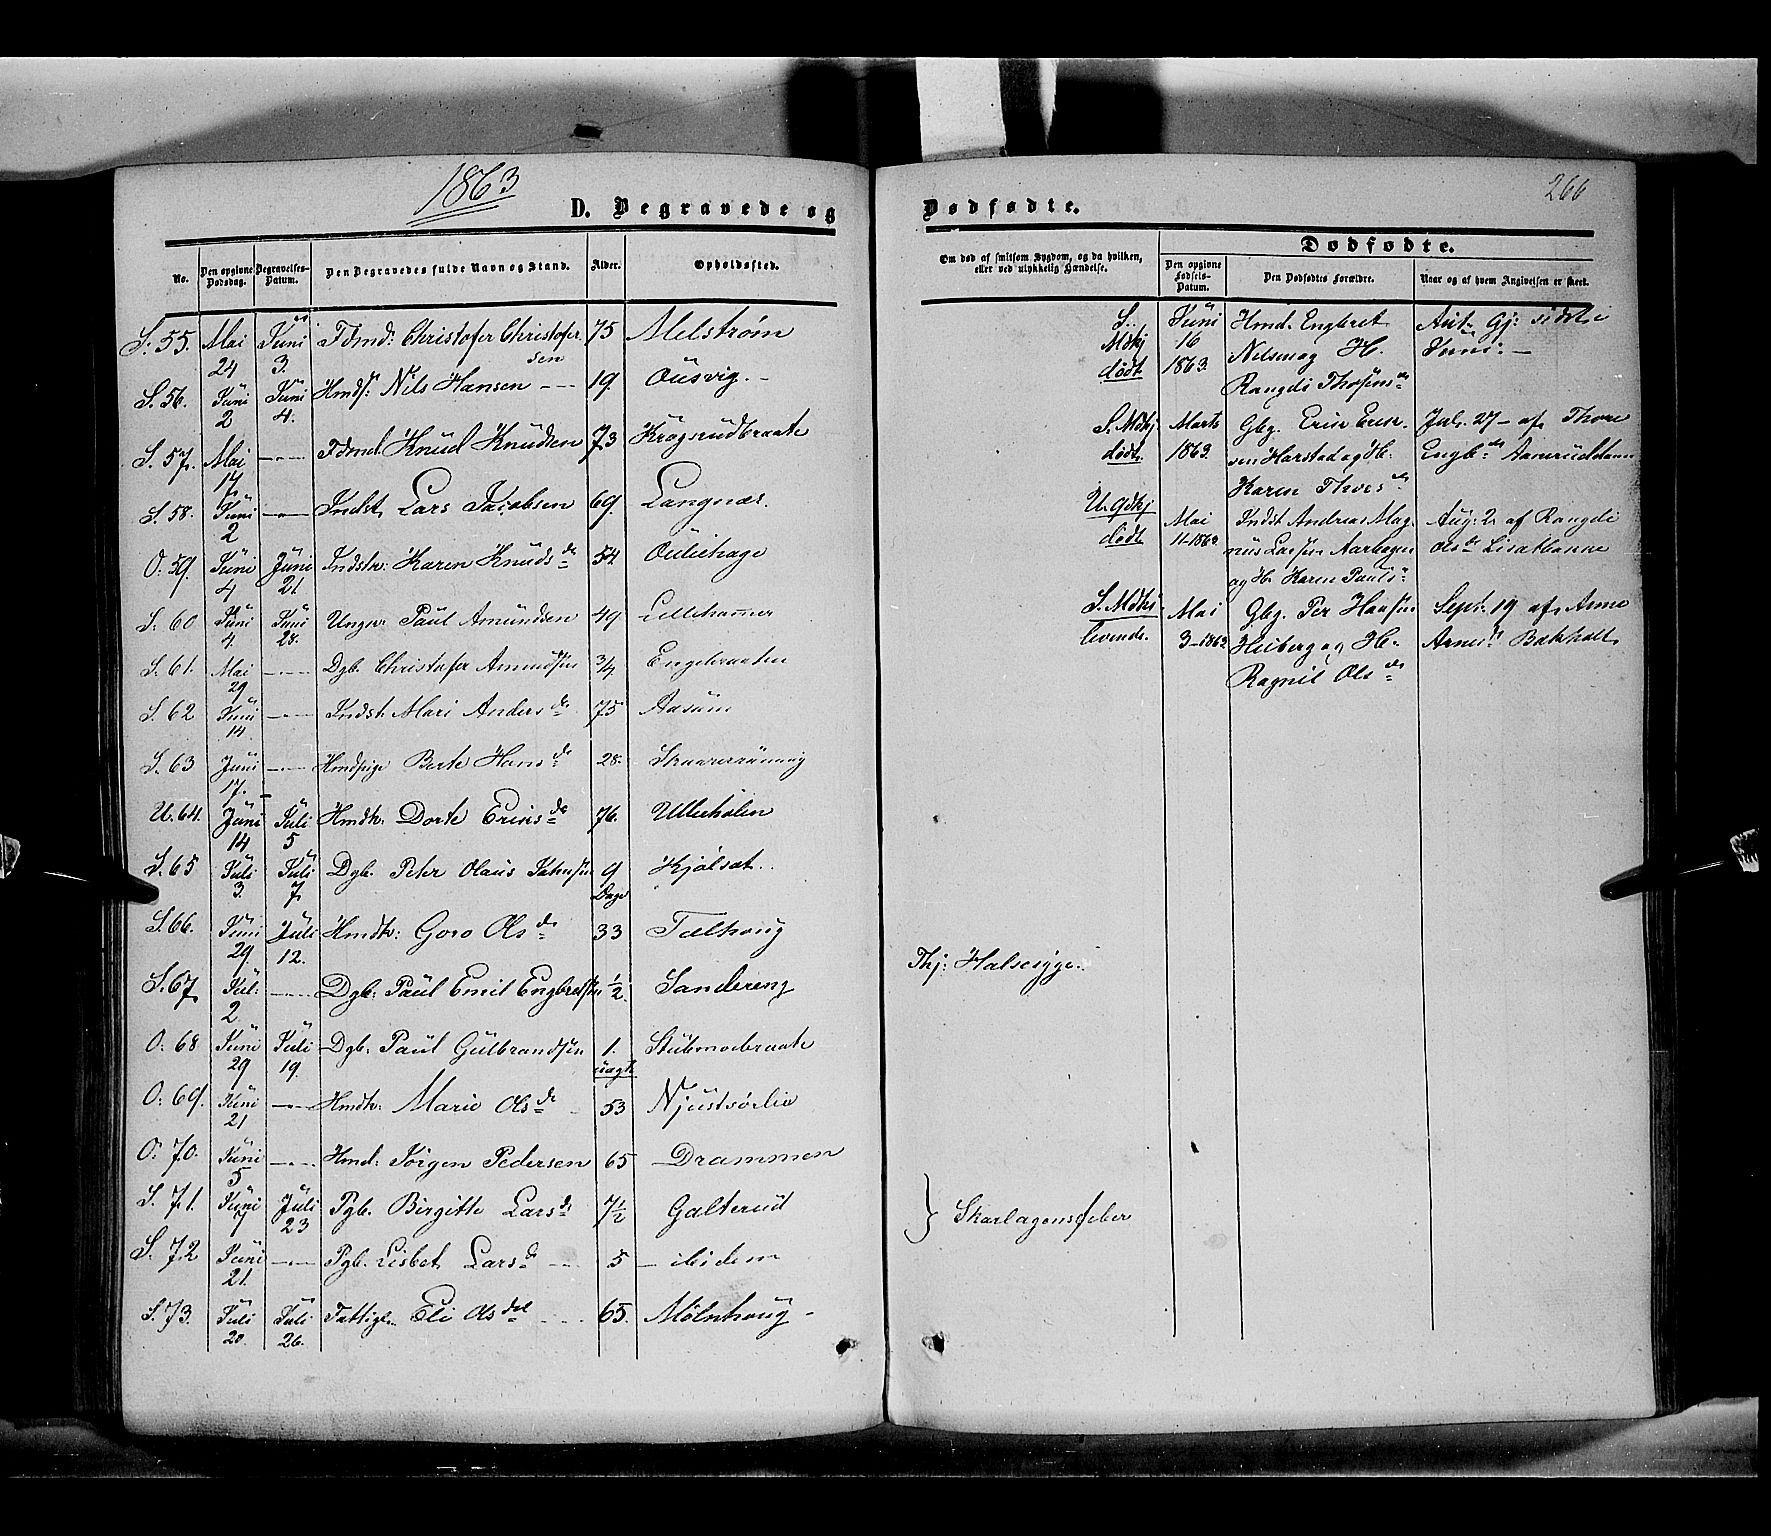 1863
D. Begravede og
No. Den opgivne Dødsdag. Begravelses-Datum. Den Begravedes fulde Navn og Stand. Alder. Opholdssted.
S. 55. Mai 24 Juni 3. Fdmd: Christofer Christofersen 75 Melstrøm
S. 56. Juni 2 Juni 4. Hmds: Nils Hansen 19. Ousvig.
S. 57. Mai 17 Fdmd. Knud Knudsen 73 Krogsrudbraate
S. 58. Juni 2 Indst. Lars Jacobsen 69. Langnæs.
O. 59. Juni 4 Juni 21 Indstk: Karen Knudsdr 54. Ouliehage
S. 60 Juni 4. Juni 28. Ungkr: Paul Amundsen 49. Lillehamer
S. 61. Mai 29 Dgb. Christofer Amundsen 3/4 Engebraaten
S. 62 Juni 14. Indst. Mari Andersdr 75 Aasum
S. 63 Juni 17. Hmdpige Berte Hansdr 28.
U. 64. Juni 14 Juli 5 Hmdk: Dorte Ericsdr 76. Ullieholen
S. 65 Juli 3. Juli 7. Dgb. Peter Olaus Johnsen 9 Dage Kjølsæt
S. 66. Juni 29. Juli 12. Hmdk: Goro Olsdr 33 Tælhaug
S. 67 Juli 2. Dgb: Paul Emil Engbretsen 1/2. Sandereng
O. 68 Juni 29 Juli 19. Dgb. Paul Gulbrandsen 1. uægte Stubmobraate
O. 69. Juni 21 Hmdk: Marie Olsdr 53 Njustsørlie
O. 70. Juni 5 Hmd: Jørgen Pedersen 65 Drammen
S. 71. Juni 7 Juli 23 Pgb. Birgitte Larsdr 7 1/2 Galterud
S. 72 Juni 21. Pgb. Lisbet Larsd 5 ibidem
S. 73. Juli 20. Juli 26. Fattigl. Eli Olsdat 65. Mølnhaug
266
Dødfødte.
Om død af smitsom Sygdom, og da hvilken, eller ved ulykkelig Hændelse.
Dødfødte.
Den opgivne Fødsels-Datum. Den Dødfødtes Forældre. Naar og af hvem Angivelsen er skeet.
S. Mdkj dødt Juni 16 1863. Hmd. Engbret Nilsen og H. Rangdi Thosensdr Aut. Gj: sidst i Juni.
S. Mdkj dødt. Marts 1863. Gbg. Eric Ericsen Harstad og H. Karen Thorsdr Jul. 27 af Thore Engb
U. Qdkj dødt Mai 11-1863 Indst Andreas Magnus Larsen Aarhagen og H. Karen Paulsdr Aug. 2 af Rangdi Olsdr
S. Mdkj levende. Mai 3-1863 Gbg. Per Hansen Heiberg og H. Ragnil Olsdr Sept. 19 af Anne Arnesdr Bakholt
Thj: Halsesyge.
} Skarlagensfeber